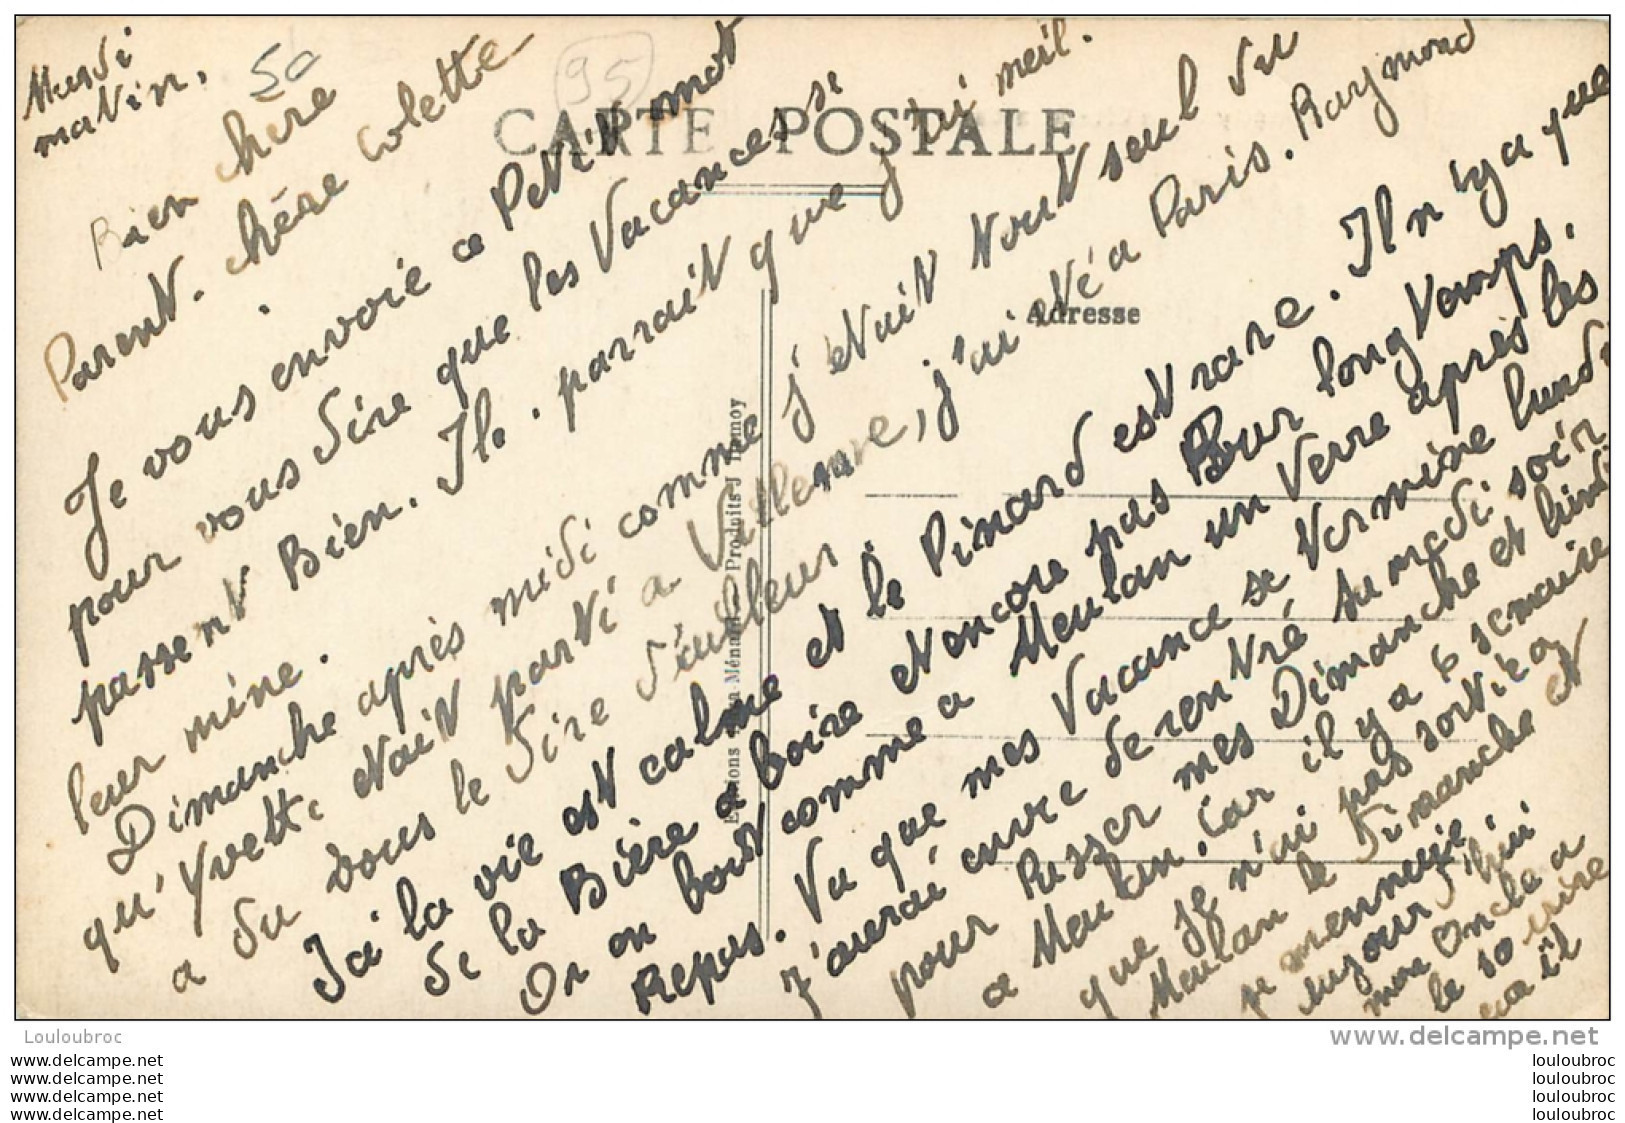 Mardi
matin.
50
95
CARTE POSTALE
Adresse
Bien chère
Parent. chère Colette
Je vous envoie ce Petit mot
pour vous dire que les Vacances si
passent Bien. Ils. parrait que j'ai meil.
leur mine.
Dimanche après midi comme j'etait tout seul vu
qu'Yvette etait parti a Vilenne, j'ai eté a Paris. Raymond
a du vous le dire d'ailleur.
Ici la vie est calme et le Pinard est rare. Il n'ya que
de la Bière a boire et encore pas Pour longtemps.
On en boit comme a Meulan un Verre après les
Repas. Vu que mes Vacance se termine lundi
j'aurai envie de rentré Samedi soir
pour Passer mes Dimanche et lundi
a Meulan. Car il y a 6 semaine
que je n'ai pas sortie a
Meulan le Dimanche et
je m'ennuie.
aujour d'hui
mon Oncle a
le so
car il
Louloubroc
www.delcampe.net
www.delcampe.net
www.delcampe.net
www.delcampe.net
www.delcampe.net
louloubroc
louloubroc
louloubroc
louloubroc